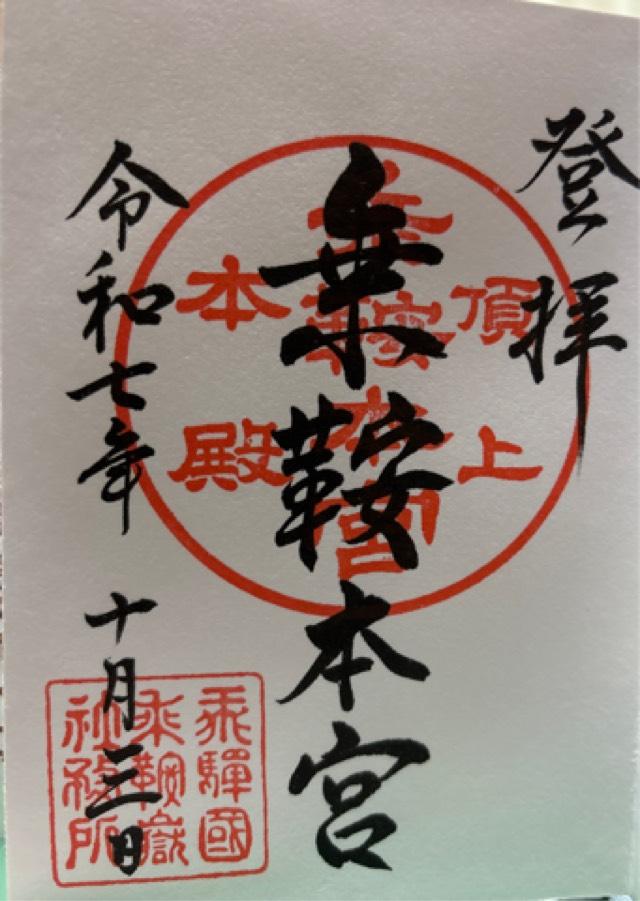 登拝
乗鞍本宮
令和七年 十月三日
頂上
乗鞍本宮
本殿
飛騨國
乗鞍嶽
社務所